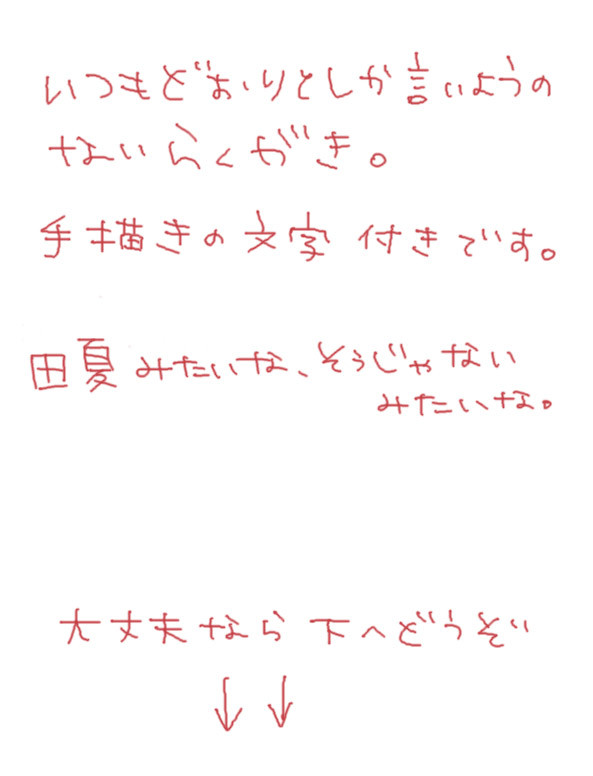 いつもどおりとしか言いようの
ないらくがき。
手描きの文字付きです。
田夏みたいな、そうじゃない
みたいな。
大丈夫なら下へどうぞ
↓↓